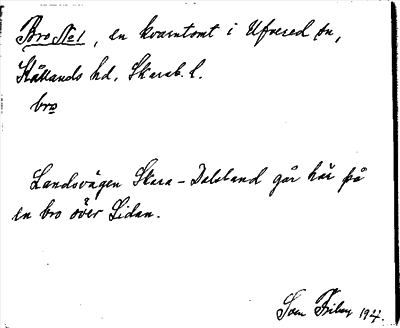 Bro No 1, en kvarntomt i Ufvered sn,
Kållands hd, Skarab. l.
bro
Landsvägen Skara – Dalsland går här på
en bro över Lidan.
Sven 194.